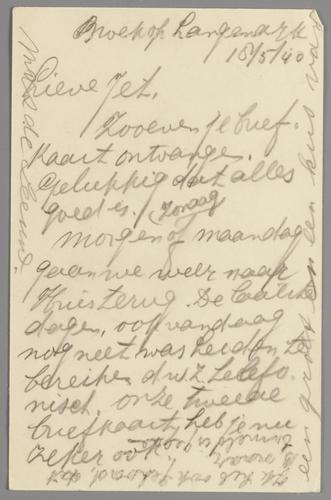 Broek op Langendijk
18/5/40
Lieve Jet.
Zooeven je brief-
kaart ontvangen.
Gelukkig dat alles
goed is. (zondag)
Morgen of maandag
gaan we weer naar
Huis terug. De laatste
dagen, ook vandaag
nog niet was Leiden te
bereiken d.w.z. telefo-
nisch. onze tweede
briefkaart heb je nu
zeker ook
een groet en een kus van